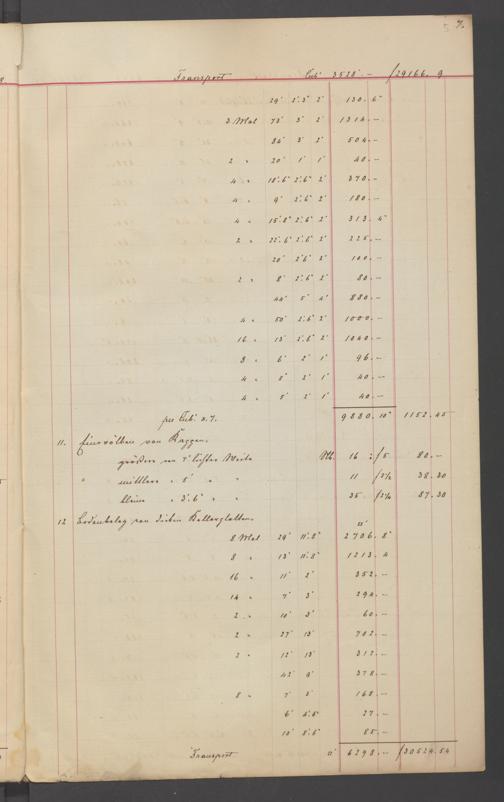 7.
Transport Cub' 3528.- f 29166. 9
29' 2'.3" 2' 130. 6"
3 Mal 73' 3' 2' 1314.-
84' 3' 2' 504.-
2 " 20' 1' 1' 40.-
4 " 18'.6" 2'.6" 2' 370.-
4 " 9' 2'.6" 2' 180.-
4 " 15'.8" 2'.6" 2' 313. 4"
2 " 22'.6" 2'.6" 2' 225.-
20' 2'.6" 2' 100.-
2 " 8' 2'.6" 2' 80.-
44' 5' 4' 880.-
4 " 50' 2'.6" 2' 1000.-
16 " 13' 2'.6" 2' 1040.-
8 " 6' 2' 1' 96.-
4 " 5' 2' 1' 40.-
4 " 5' 2' 1' 40.-
per Cub' 9880. 10" 1152.45
11. Einwölben von Kappen.
größere von 7' lichter Weite 16 f 5 80.-
" mittlere " 5' " " 11 38.30
kleine " 3'.6" " " 35 87.30
12 Bodenbelag von dicken Kellerplatten.
8 Mal 29' 11'.8" 2706. 8"
8 " 13' 11'.8" 1213. 4
16 " 11' 2' 352.-
14 " 7' 3' 294.-
2 " 10' 3' 60.-
2 " 27' 13' 702.-
2 " 12' 13' 312.-
42' 9' 378.-
8 " 7' 3' 168.-
6' 4'.6" 27.-
10' 8'.6" 85.-
Transport 6298.- f 30524.54